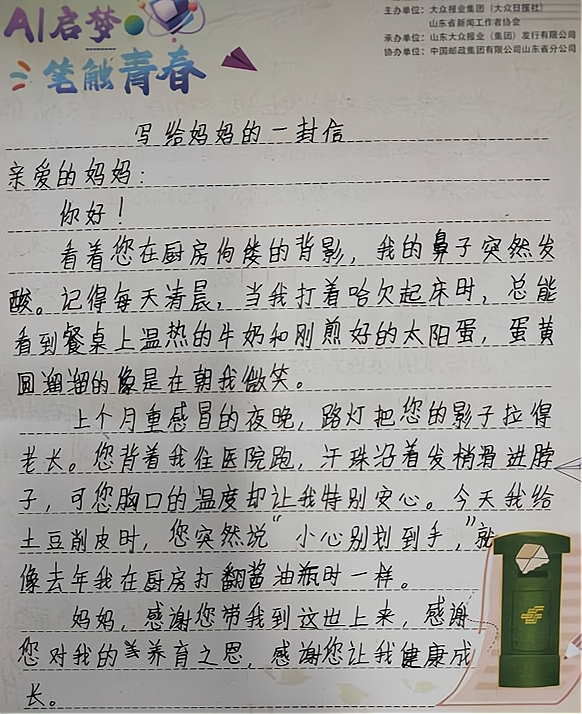 AI启梦
笔触青春
主办单位：大众报业集团（大众日报社）
山东省新闻工作者协会
承办单位：山东大众报业（集团）发行有限公司
协办单位：中国邮政集团有限公司山东省分公司
写给妈妈的一封信
亲爱的妈妈：
你好！
看着您在厨房佝偻的背影，我的鼻子突然发
酸。记得每天清晨，当我打着哈欠起床时，总能
看到餐桌上温热的牛奶和刚煎好的太阳蛋，蛋黄
圆溜溜的像是在朝我微笑。
上个月重感冒的夜晚，路灯把您的影子拉得
老长。您背着我往医院跑，汗珠沿着发梢滑进脖
子，可您胸口的温度却让我特别安心。今天我给
土豆削皮时，您突然说“小心别划到手，”就
像去年我在厨房打翻酱油瓶时一样。
妈妈，感谢您带我到这世上来，感谢
您对我的养育之恩，感谢您让我健康成
长。